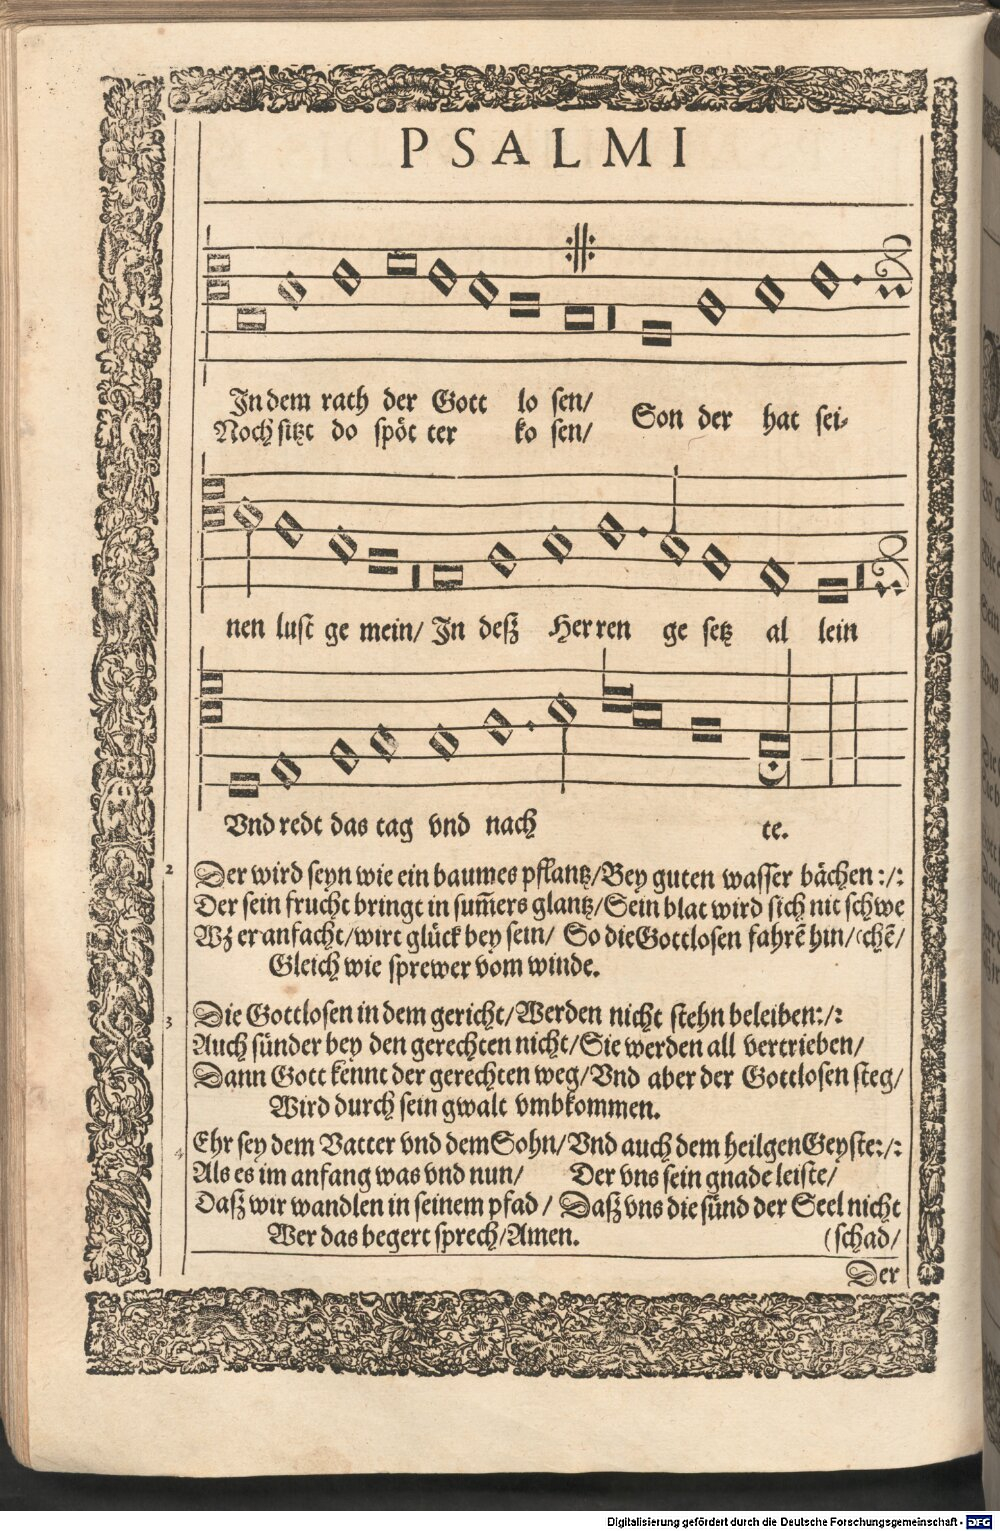 PSALMI
In dem rath der Gott lo sen/ Son der hat sei-
Noch sitzt do spöt ter ko sen/
nen lust ge mein/ In deß Her ren ge setz al lein
Vnd redt das tag vnd nach te.
2 Der wird seyn wie ein baumes pflantz/Bey guten wasser bächen :/:
Der sein frucht bringt in sum̃ers glantz/Sein blat wird sich nit schwe
Wz er anfacht/wirt glück bey sein/ So die Gottlosen fahrẽ hin/(chẽ/
Gleich wie sprewer vom winde.
3 Die Gottlosen in dem gericht/Werden nicht stehn beleiben:/:
Auch sünder bey den gerechten nicht/Sie werden all vertrieben/
Dann Gott kennt der gerechten weg/Vnd aber der Gottlosen steg/
Wird durch sein gwalt vmbkommen.
4 Ehr sey dem Vatter vnd dem Sohn/Vnd auch dem heilgen Geyste:/:
Als es im anfang was vnd nun/ Der vns sein gnade leiste/
Daß wir wandlen in seinem pfad/ Daß vns die sünd der Seel nicht
Wer das begert sprech/Amen. (schad/
Der
Digitalisierung gefördert durch die Deutsche Forschungsgemeinschaft - DFG